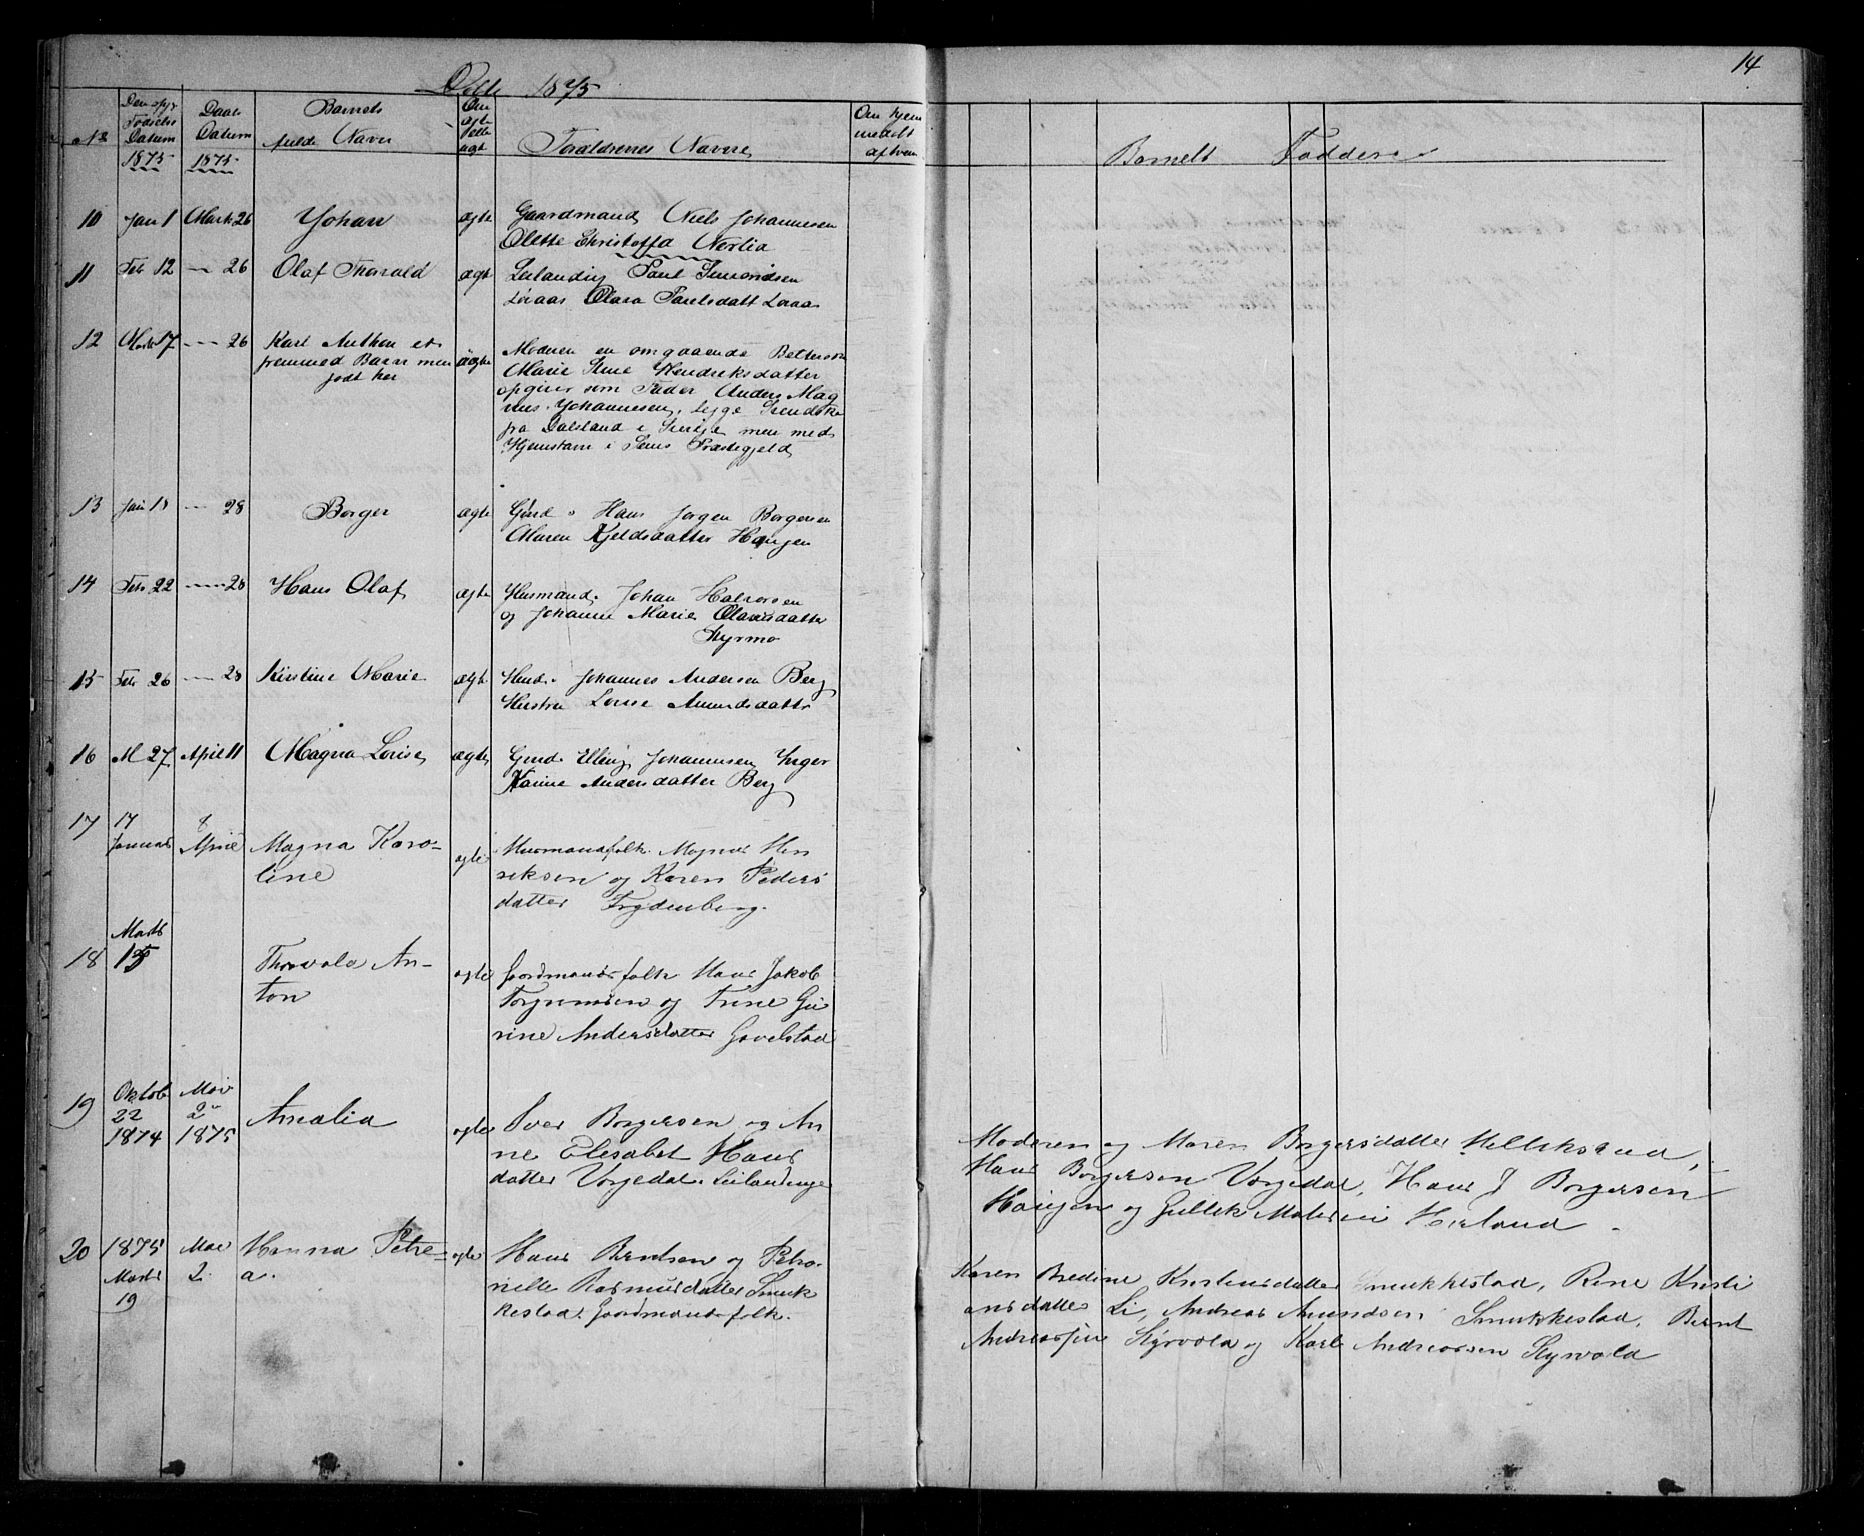 14
Døbte 1875
No
Den opg. Fødsels Datum 1875
Daabs Datum 1875
Barnets fulde Navn
Om ægte eller uægt
Forældrenes Navne
Om hjem medølt af hvem
Barnets Faddere
10 Jan 1 Marts 26 Johan ægte Gaardmand Niels Johannesen
Olette Christoffa Nerlia
11 Feb 12 — 26 Olaf Thorvald ægte Leilanding Paul Simonsen
Løraas Olava Paulsdatt Løraas
12 Marts 17 — 26 Karl Anthon et uægte Moderen en omgaaende Betlerson
fremmed Barn men Marie Stine Hendriksdatter
født her opgiver som Fader Anders Mag
nus Johannesen, begge Svendske
fra Dalsland i Sverige men med
Hjemstavn i Sems Præstegjeld
13 Jan 18 — 28 Borger ægte Grd. Hans Jørgen Borgersen
Maren Kjeldsdatter Haugen
14 Feb 22 — 28 Hans Olaf ægte Husmand. Johan Halvorsen
og Johanne Marie Olausdatter
Styrmo
15 Feb 26 — 28 Kirstine Marie ægte Husd. Johannes Andersen Berg
Hustru Lovise Amundsdatter
16 M 27 April 11 Magna Lovise ægte Grmd. Elling Johannesen Inger
Karine Andersdatter Berg
17 17 Januar 8 April Magna Karo- ægte Husmandsfolk. Magnus Hen
line riksen og Karen Peders
datter Frydenberg.
18 Marts 15 Thorvald An- ægte Gaardmandsfolk Hans Jakob
ton Torgrimsen og Trine Gu
rine Andersdatter Gavelstad
19 Oktob 22 1874 Mai 2 1875 Amalia ægte Iver Borgersen og An
ne Elisabet Hans
datter Vorgedal. Leilendinge
Moderen og Maren Borgersdatter Hellikstad,
Hans Borgersen Vorgedal, Hans J Borgersen
Haugen og Gullik
20 1875 Marts 19 Mai 2 Hanna Petre- ægte Hans Berntsen og Petro
a. nelle Rasmusdatter Smuk
kestad. Gaardmandsfolk.
Karen Bredine Kristensdatter Smukkestad, Rine Kristi
ansdatter Li, Andreas Amundsen Smukkestad, Bernt
Andreassen Styrvold og Karl Andreassen Styrvold